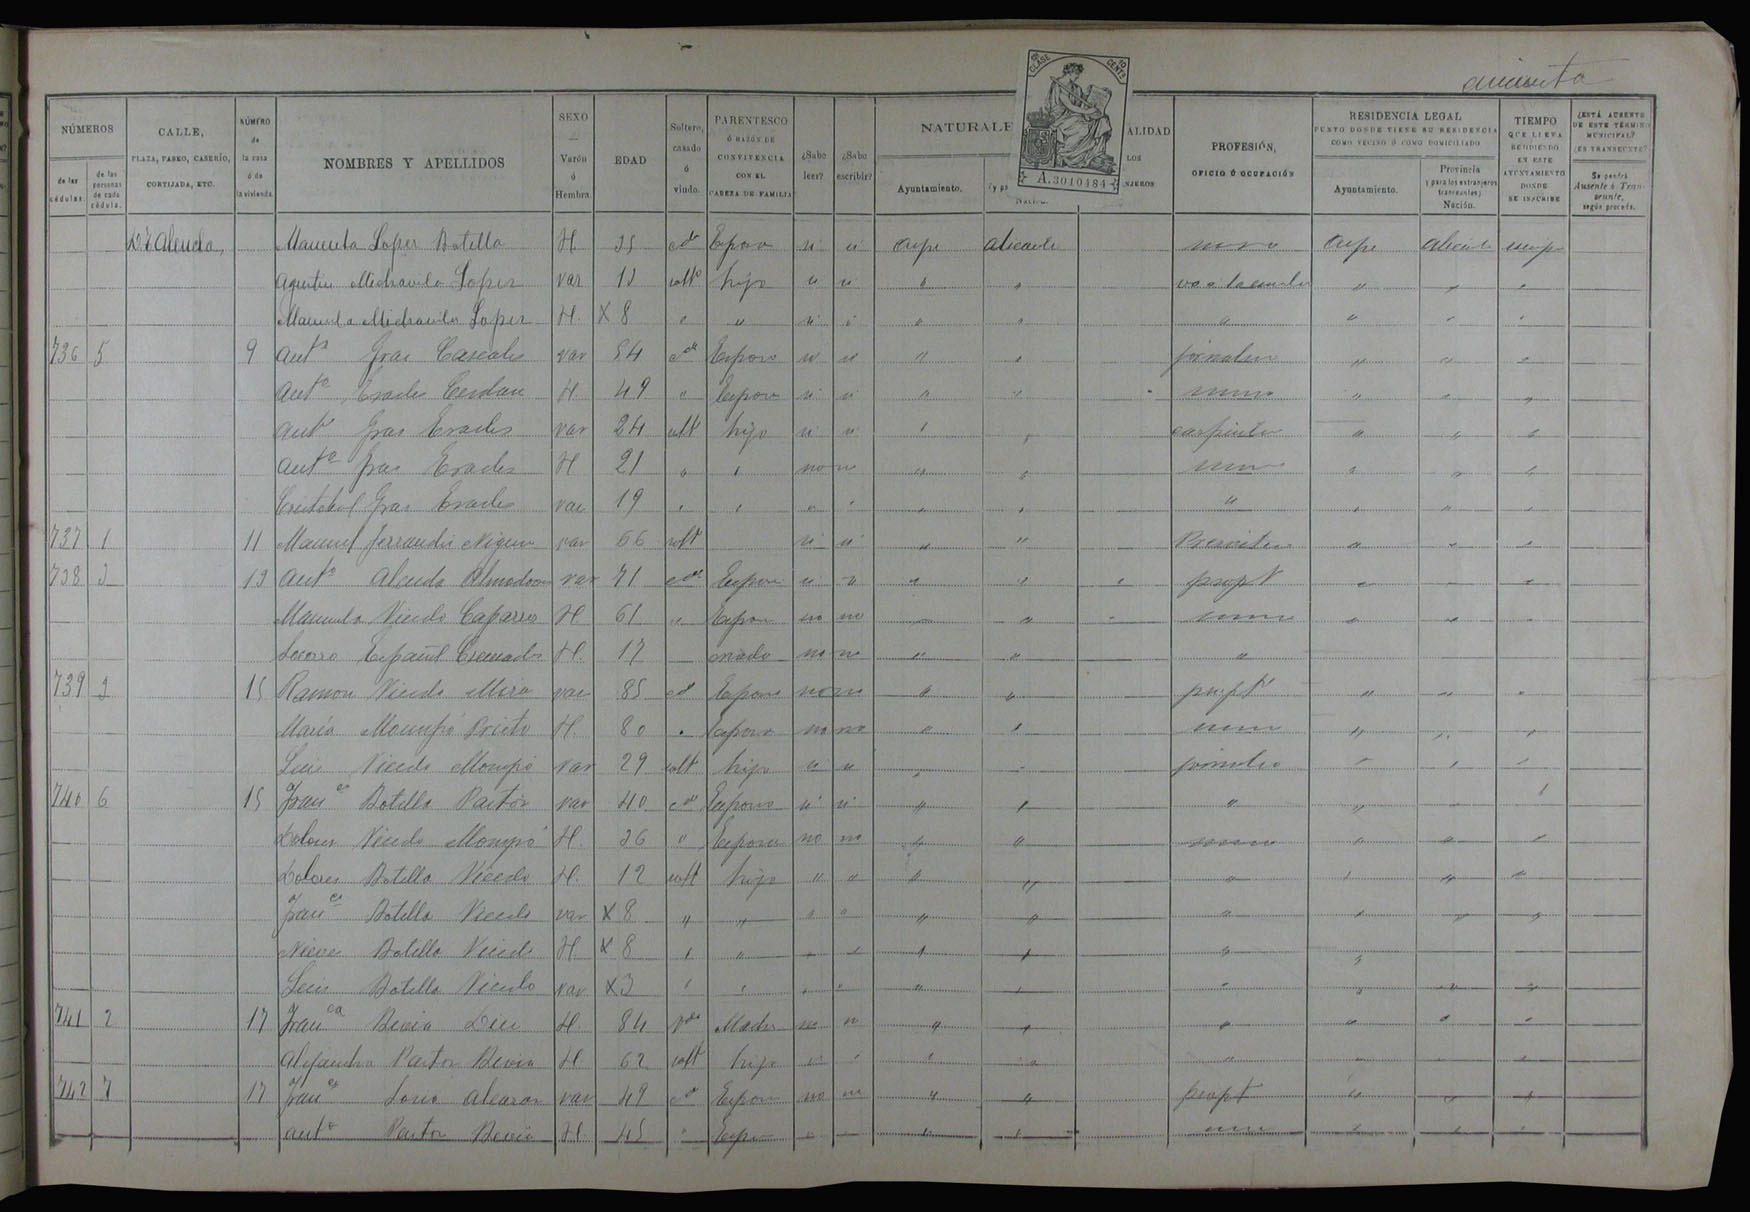 NÚMEROS
de las cédulas.
de las personas de cada cédula.
CALLE,
PLAZA, PASEO, CASERÍO,
CORTIJADA, ETC.
NÚMERO
de
la casa
ó de
la vivienda.
NOMBRES Y APELLIDOS
SEXO
Varón
ó
Hembra
EDAD
Soltero,
casado
ó
viudo.
PARENTESCO
Ó RAZÓN DE
CONVIVENCIA
CON EL
CABEZA DE FAMILIA
¿Sabe leer?
¿Sabe escribir?
NATURALE
Ayuntamiento.
8ª CLASE 10 CENTS
A.3010484
ALIDAD
LOS
NJEROS
PROFESIÓN,
OFICIO Ó OCUPACIÓN
RESIDENCIA LEGAL
PUNTO DONDE TIENE SU RESIDENCIA
COMO VECINO Ó COMO DOMICILIADO
Ayuntamiento.
Provincia
(y para los extranjeros transeuntes)
Nación.
TIEMPO
QUE LLEVA
RESIDIENDO
EN ESTE
AYUNTAMIENTO
DONDE
SE INSCRIBE
¿ESTÁ AUSENTE
DE ESTE TÉRMINO
MUNICIPAL?
¿ES TRANSEUNTE?
Se pondrá
Ausente ó Tran-
seunte,
según proceda.
Alenda, Manuela Lopez Botella H. 35 cda Esposa si si Aspe Alicante Aspe Alicante siemp
Agustin Michavila Lopez var 13 solto hijo si si " " va a la escuela " " "
Manuela Michavila Lopez H. X 8 " " " " " " " "
736 5 9 Anto Gras Cascales var 54 cdo Esposo si si " " jornalero " " "
Anta Erades Cerdan H. 49 " Esposa si si " " " " "
Anto Gras Erades var 24 solt hijo si si " " carpintero " " "
Anta Gras Erades H 21 " " no no " " " " "
Cristobal Gras Erades var 19 " " " " " " " " " "
737 1 11 Manuel Ferrandis var 66 solt si si " " Presvitero " " "
738 3 13 Anto Alenda Almodovar var 71 cdo Esposo si " " " " propt " "
Manuela Vicedo Caparros H 61 " Esposa no no " " " " " "
Socorro Español Cremades H. 17 criada no no " " "
739 3 15 Ramon Vicedo Mira var 85 cdo Esposo no no " " propt " " "
María Mompó Prieto H. 80 " Esposa no no " " " " "
Luis Vicedo Mompó var 29 solt hijo si si " " jornalero " " "
740 6 15 Franco Botella Pastor var 40 cdo Esposo si si " " " "
Dolores Vicedo Mompó H. 36 " Esposa no no " " " " "
Dolores Botella Vicedo H. 12 solt hija " " " " " " " "
Franco Botella Vicedo var X 8 " " " " " " " " " "
Nieves Botella Vicedo H. X 8 " " " " " " " "
Luis Botella Vicedo var X 3 " " " " " " " " " "
741 2 17 Franca Bevia H. 84 vda Madre no no " " " " " "
Alejandra Pastor Bevia H 62 solt hija " " " " " " " "
742 7 17 Franco Soria Alcaraz var 49 cdo Esposo no no " " propt " " "
Anta Pastor Bevia H. 45 " Espo " " " " " " "